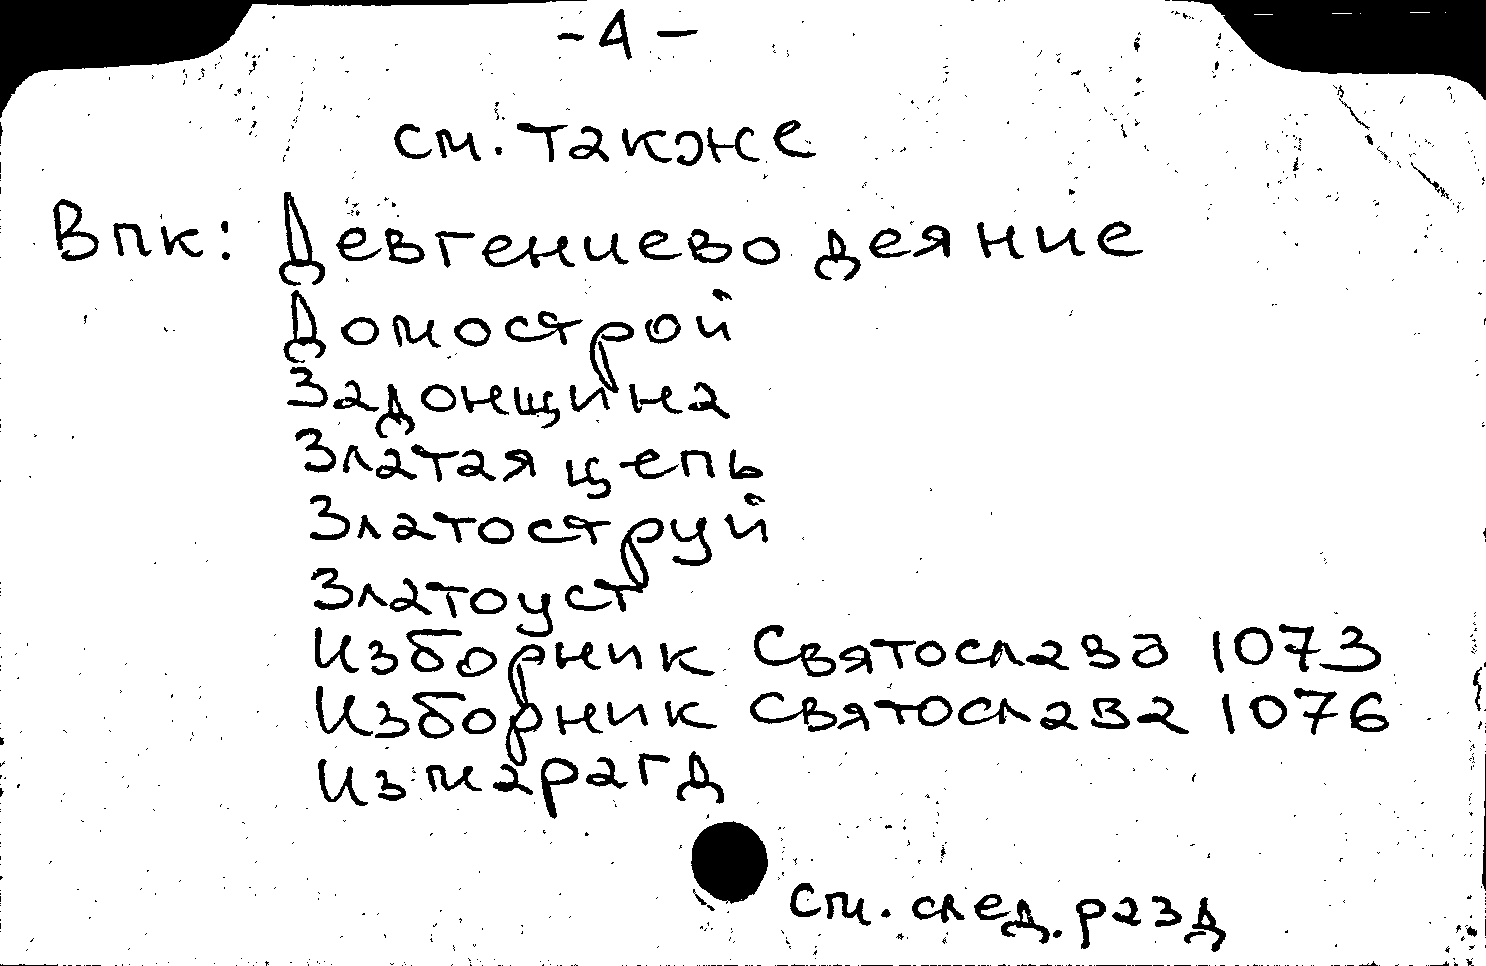 - 4 -
см. также
Впк: Девгениево деяние
Домострой
Задонщина
Златая цепь
Златоструй
Златоуст
Изборник Святослава 1073
Изборник Святослава 1076
Измарагд
см. след. разд